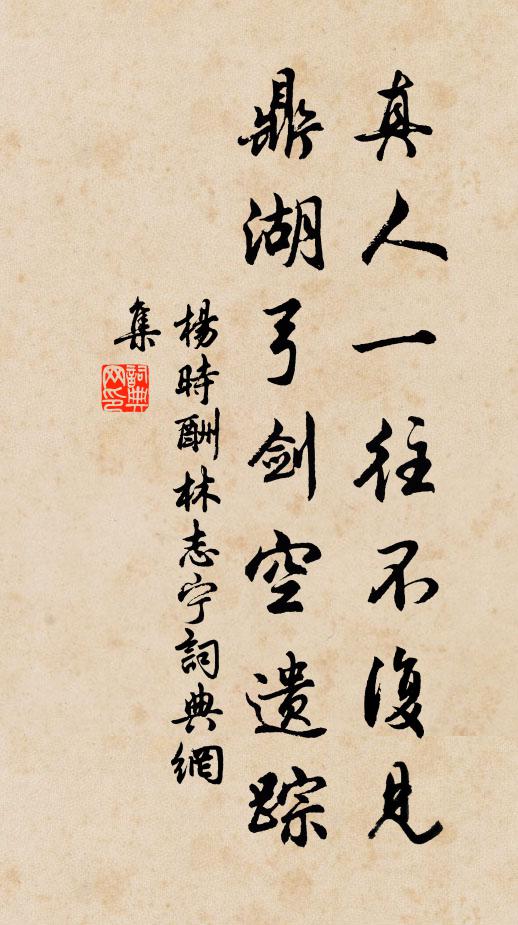 真人一往不復見
鼎湖弓剑空遗踪
楊時酬林志宁詞典網
集
詞典
网印